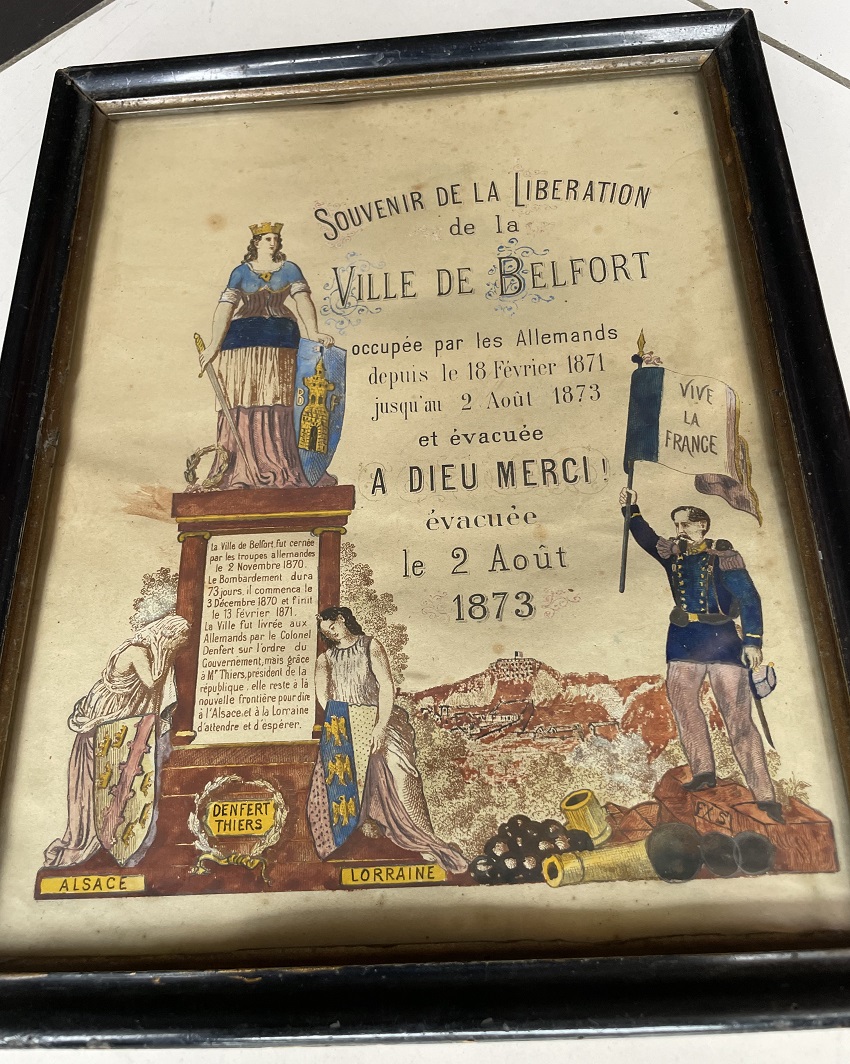 SOUVENIR DE LA LIBERATION
de la
VILLE DE BELFORT
occupée par les Allemands
depuis le 18 Février 1871
jusqu'au 2 Août 1873
et évacuée
A DIEU MERCI!
évacuée
le 2 Août
1873
B F
VIVE
LA
FRANCE
La Ville de Belfort fut cernée
par les troupes allemandes
le 2 Novembre 1870.
Le Bombardement dura
73 jours, il commença le
3 Décembre 1870 et finit
le 13 février 1871.
La Ville fut livrée aux
Allemands par le Colonel
Denfert sur l'ordre du
Gouvernement, mais grâce
à Mr Thiers, président de la
république, elle reste à la
nouvelle frontière pour dire
à l'Alsace et à la Lorraine
d'attendre et d'espérer.
DENFERT
THIERS
ALSACE
LORRAINE